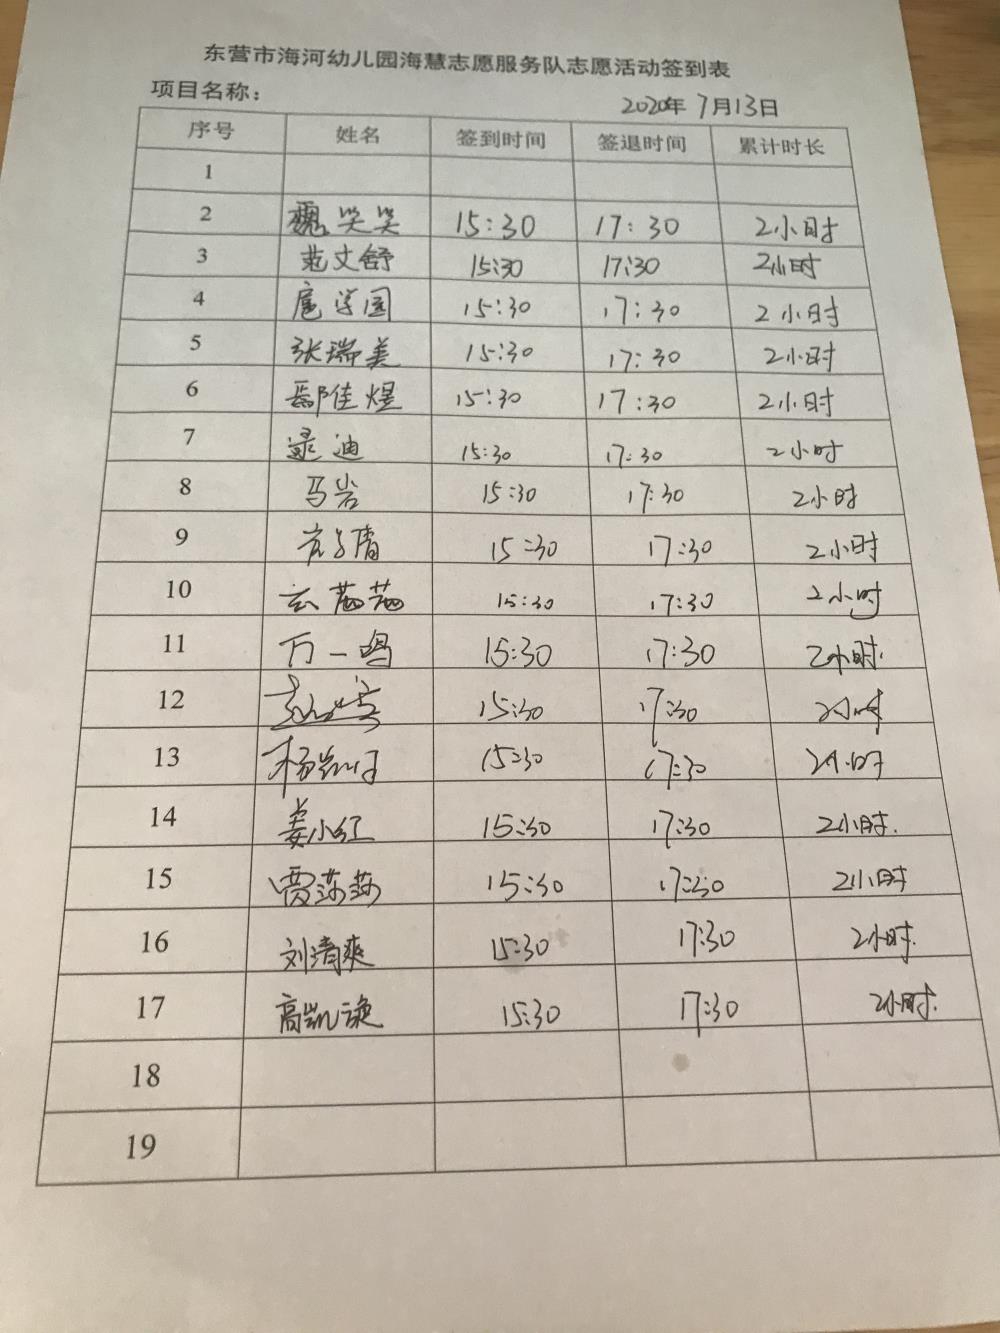 东营市海河幼儿园海慧志愿服务队志愿活动签到表
项目名称： 2020年 7月13日
序号 姓名 签到时间 签退时间 累计时长
1
2 魏笑笑 15:30 17:30 2小时
3 范文舒 15:30 17:30 2小时
4 扈学国 15:30 17:30 2小时
5 张瑞美 15:30 17:30 2小时
6 鄢佳煜 15:30 17:30 2小时
7 逯迪 15:30 17:30 2小时
8 马岩 15:30 17:30 2小时
9 15:30 17:30 2小时
10 15:30 17:30 2小时
11 万一鸣 15:30 17:30 2小时.
12 15:30 17:30 2小时
13 杨凯 15:30 17:30 2小时
14 姜小红 15:30 17:30 2小时.
15 贾莎莎 15:30 17:30 2小时
16 刘清爽 15:30 17:30 2小时.
17 高凯旋 15:30 17:30 2小时.
18
19